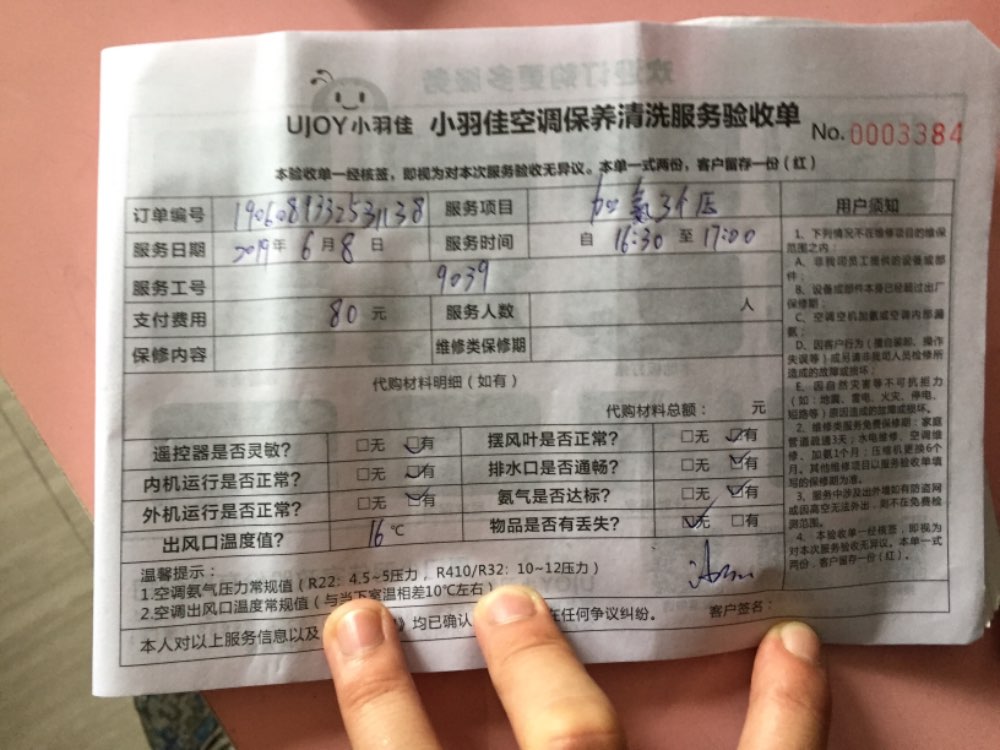 UJOY小羽佳 小羽佳空调保养清洗服务验收单 No.0003384
本验收单一经核签，即视为对本次服务验收无异议。本单一式两份，客户留存一份（红）
订单编号 服务项目 加氨3个压
服务日期 2019年 6月 8日 服务时间 自 16:30 至 17:00
服务工号 9039
支付费用 80 元 服务人数 人
保修内容 维修类保修期
代购材料明细（如有）
代购材料总额： 元
遥控器是否灵敏? □无 □有 摆风叶是否正常? □无 □有
内机运行是否正常? □无 □有 排水口是否通畅? □无 □有
外机运行是否正常? □无 □有 氨气是否达标? □无 □有
出风口温度值? 16℃ 物品是否有丢失? □无 □有
温馨提示：
1.空调氨气压力常规值（R22：4.5~5压力，R410/R32：10~12压力）
2.空调出风口温度常规值（与当下室温相差10℃左右）
本人对以上服务信息以及 均已确认 在任何争议纠纷。 客户签名：
用户须知
1、下列情况不在维修项目的维保
范围之内：
A、非我司员工提供的设备或部
件；
B、设备或部件本身已经超过出厂
保修期；
C、空调空机加氨或空调内部漏
氨；
D、因客户行为（擅自装卸、操作
失误等）或另请非我司人员检修所
造成的故障或损坏；
E、因自然灾害等不可抗拒力
（如：地震、雷电、火灾、停电、
短路等）原因造成的故障或损坏。
2、维修类服务免费保修期：家庭
管道疏通3天；水电维修、空调维
修、加氨1个月；压缩机更换6个
月。其他维修项目以服务验收单填
写的保修期为准。
3、服务中涉及出外墙如有防盗网
或因高空无法外出，则不在免费检
测范围。
4、本验收单一经核签，即视为
对本次服务验收无异议。本单一式
两份，客户留存一份（红）。